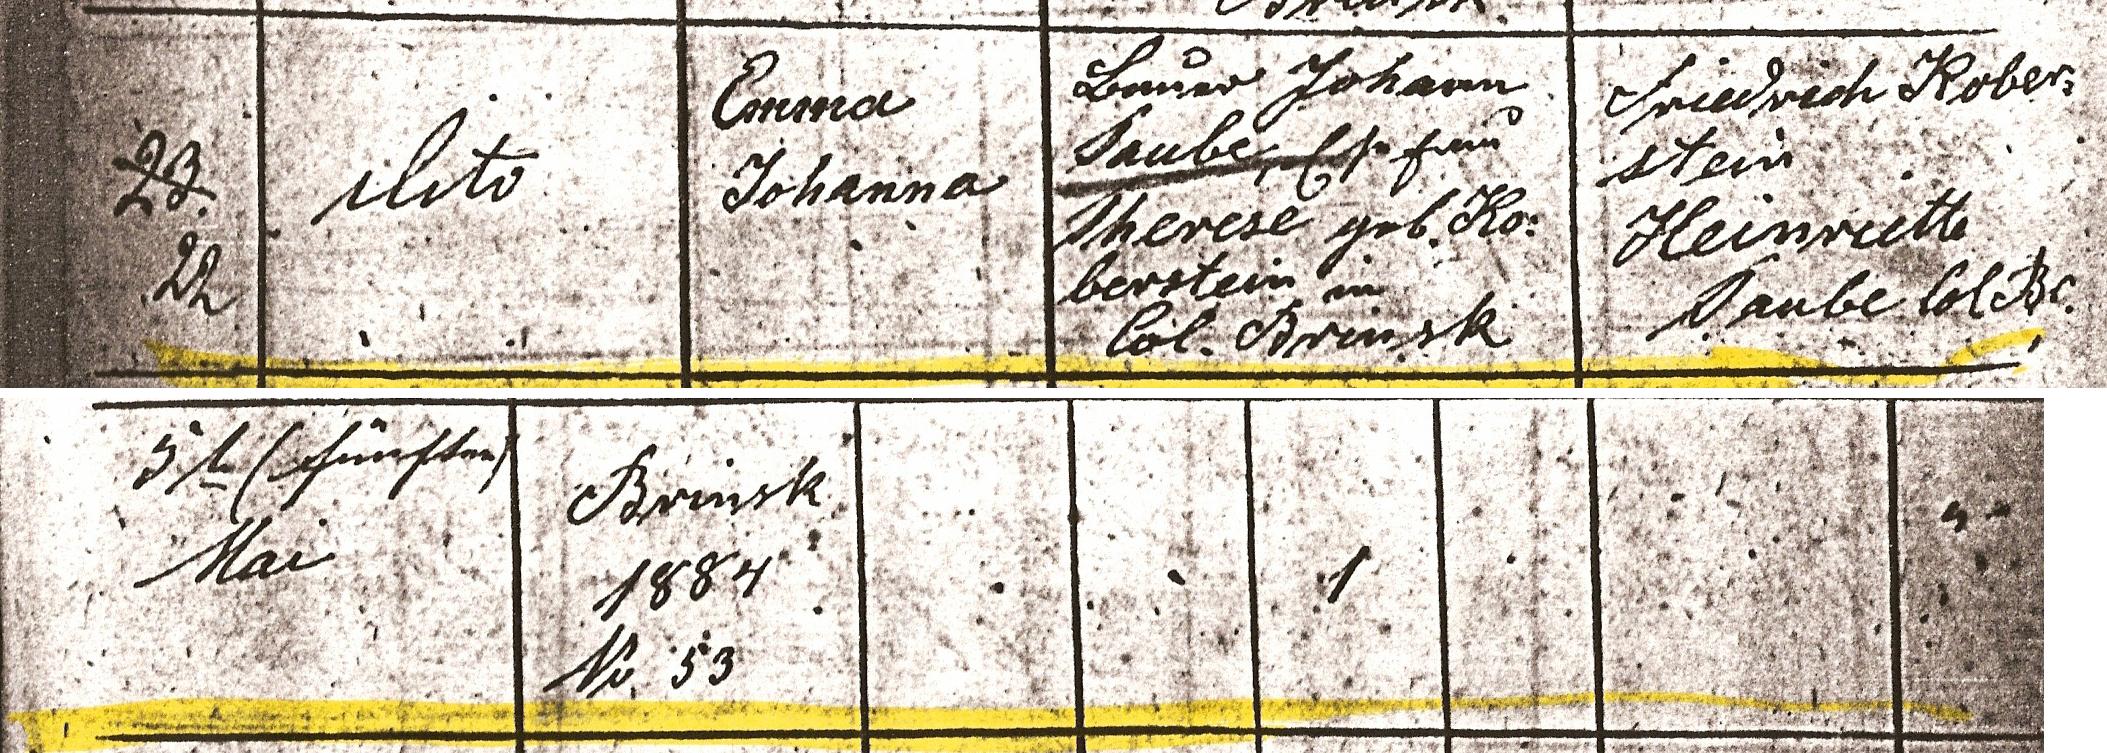 23.
22
dito
Emma
Johanna
Bauer Johann
Daube, Ehefrau
Therese geb. Ko:
berstein in
Col. Brinsk
Friedrich Kober:
stein
Heinriette
Daube Col. Br.
5 t. (fünften)
Mai
Brinsk
1884
No 53
1